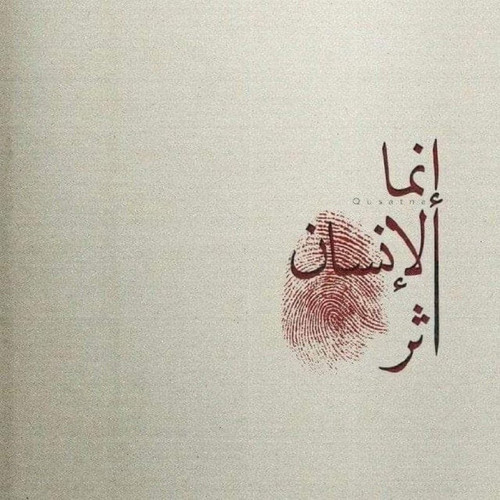 إنما
Qusatna
الإنسان
أثر